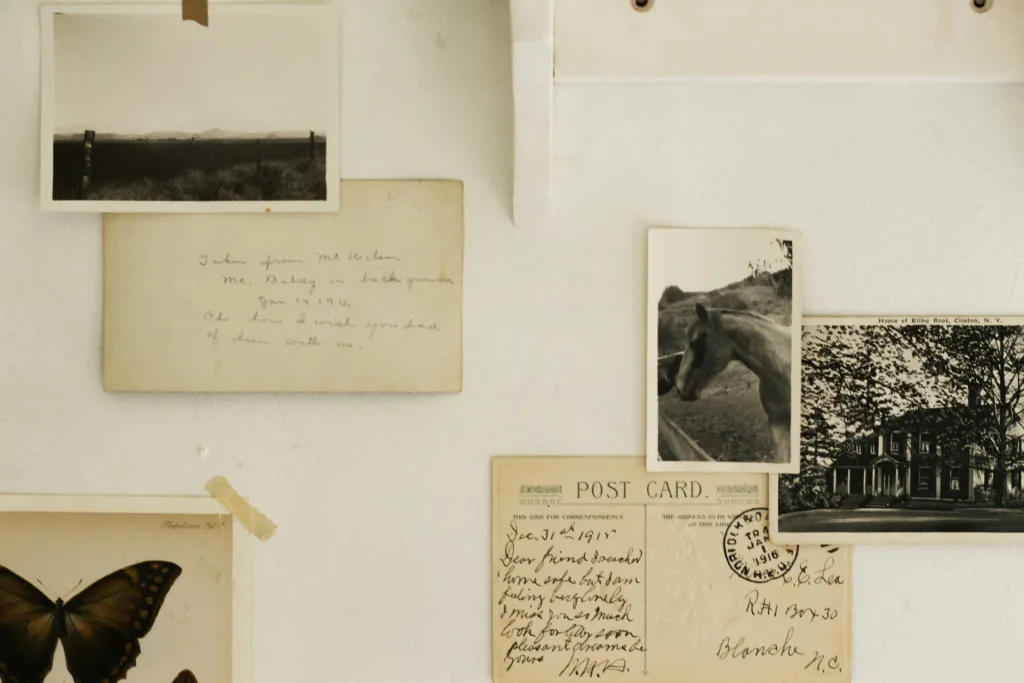 Taken from Mt Wilson
Mt. Baldy in back ground
Jan 19, 191
Oh how I wish you had
of been with us.
Home of Elihu Root, Clinton, N. Y.
POST CARD.
THIS SIDE FOR CORRESPONDENCE.
THE ADDRESS TO BE
ON THIS SIDE
Dec. 31st 1915
Dear friend I reached
home safe but I am
feling very lonely
I miss you so much
look for letter soon
pleasant dreams be
yours M.M.H.
NORFOLK
JAN
1
1916
R.P.O.
C.E. Lea
R.#1 Box 30
Blanche N.C.